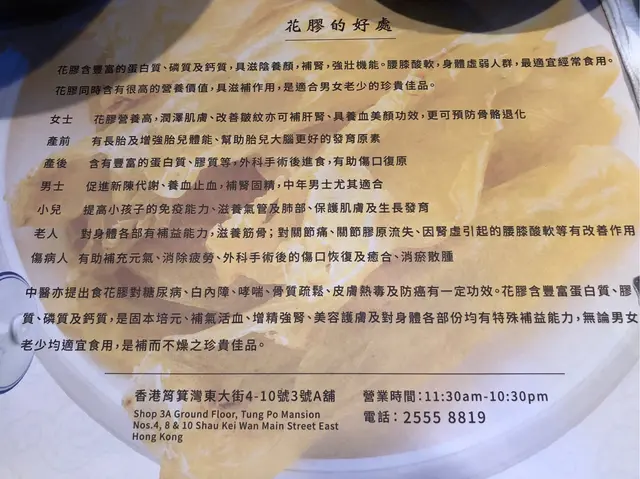 花膠的好處
花膠含豐富的蛋白質、磷質及鈣質，具滋陰養顏，補腎，強壯機能。腰膝酸軟，身體虛弱人群，最適宜經常食用。
花膠同時含有很高的營養價值，具滋補作用，是適合男女老少的珍貴佳品。
女士 花膠營養高，潤澤肌膚、改善皺紋亦可補肝腎、具養血美顏功效，更可預防骨骼退化
產前 有長胎及增強胎兒體能、幫助胎兒大腦更好的發育原素
產後 含有豐富的蛋白質、膠質等，外科手術後進食，有助傷口復原
男士 促進新陳代謝、養血止血，補腎固精，中年男士尤其適合
小兒 提高小孩子的免疫能力、滋養氣管及肺部、保護肌膚及生長發育
老人 對身體各部有補益能力，滋養筋骨；對關節痛、關節膠原流失、因腎虛引起的腰膝酸軟等有改善作用
傷病人 有助補充元氣、消除疲勞、外科手術後的傷口恢復及癒合、消瘀散腫
中醫亦提出食花膠對糖尿病、白內障、哮喘、骨質疏鬆、皮膚熱毒及防癌有一定功效。花膠含豐富蛋白質、膠
質、磷質及鈣質，是固本培元、補氣活血、增精強腎、美容護膚及對身體各部份均有特殊補益能力，無論男女
老少均適宜食用，是補而不燥之珍貴佳品。
香港筲箕灣東大街4-10號3號A舖
Shop 3A Ground Floor, Tung Po Mansion
Nos.4, 8 & 10 Shau Kei Wan Main Street East
Hong Kong
營業時間：11:30am-10:30pm
電話：2555 8819